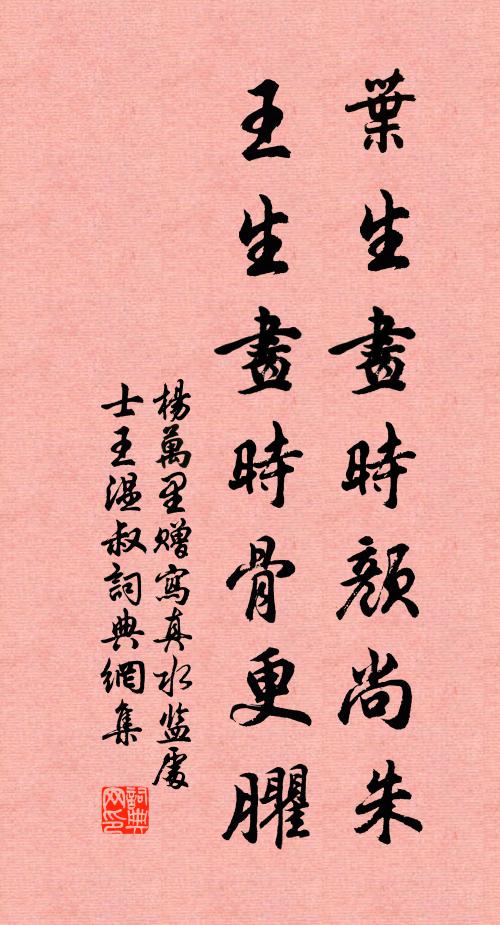 葉生畫時顏尚朱
王生畫時骨更臞
楊萬里贈寫真水监處
士王温叔詞典網集
詞典网印